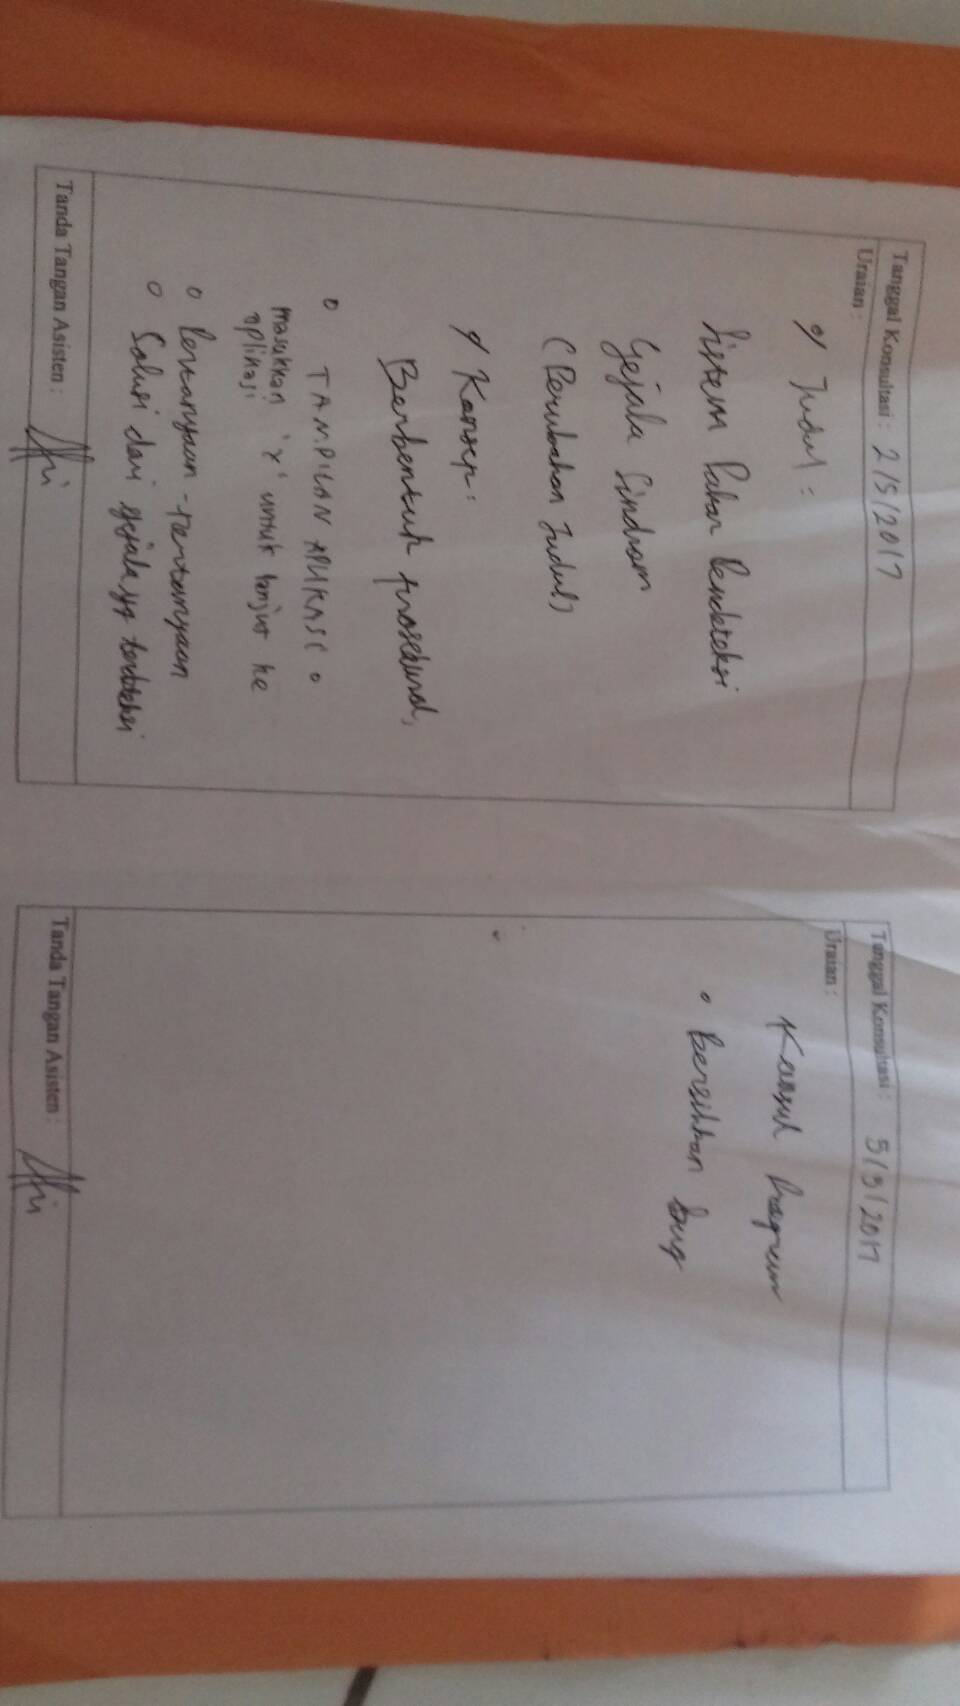 Tanggal Konsultasi : 2/5/2017
Uraian :
Judul :
Sistem Pakar Pendeteksi
Gejala Sindrom
(Perubahan Judul)
Konsep :
Berbentuk prosedural,
o TAMPILAN APLIKASI o
masukkan 'Y' untuk lanjut ke
aplikasi
o Pertanyaan - Pertanyaan
o Solusi dari gejala yg terdeteksi
Tanda Tangan Asisten :
Tanggal Konsultasi : 5/9/2017
Uraian :
Konsul Program
• Bersihkan bug
Tanda Tangan Asisten :